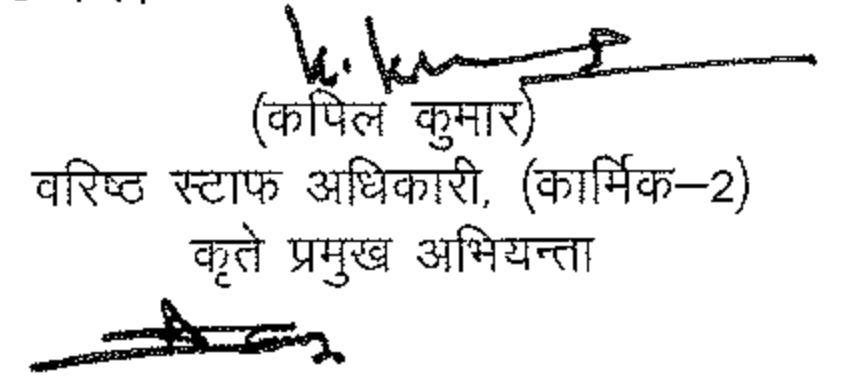 K. Kumar
(कपिल कुमार)
वरिष्ठ स्टाफ अधिकारी, (कार्मिक–2)
कृते प्रमुख अभियन्ता